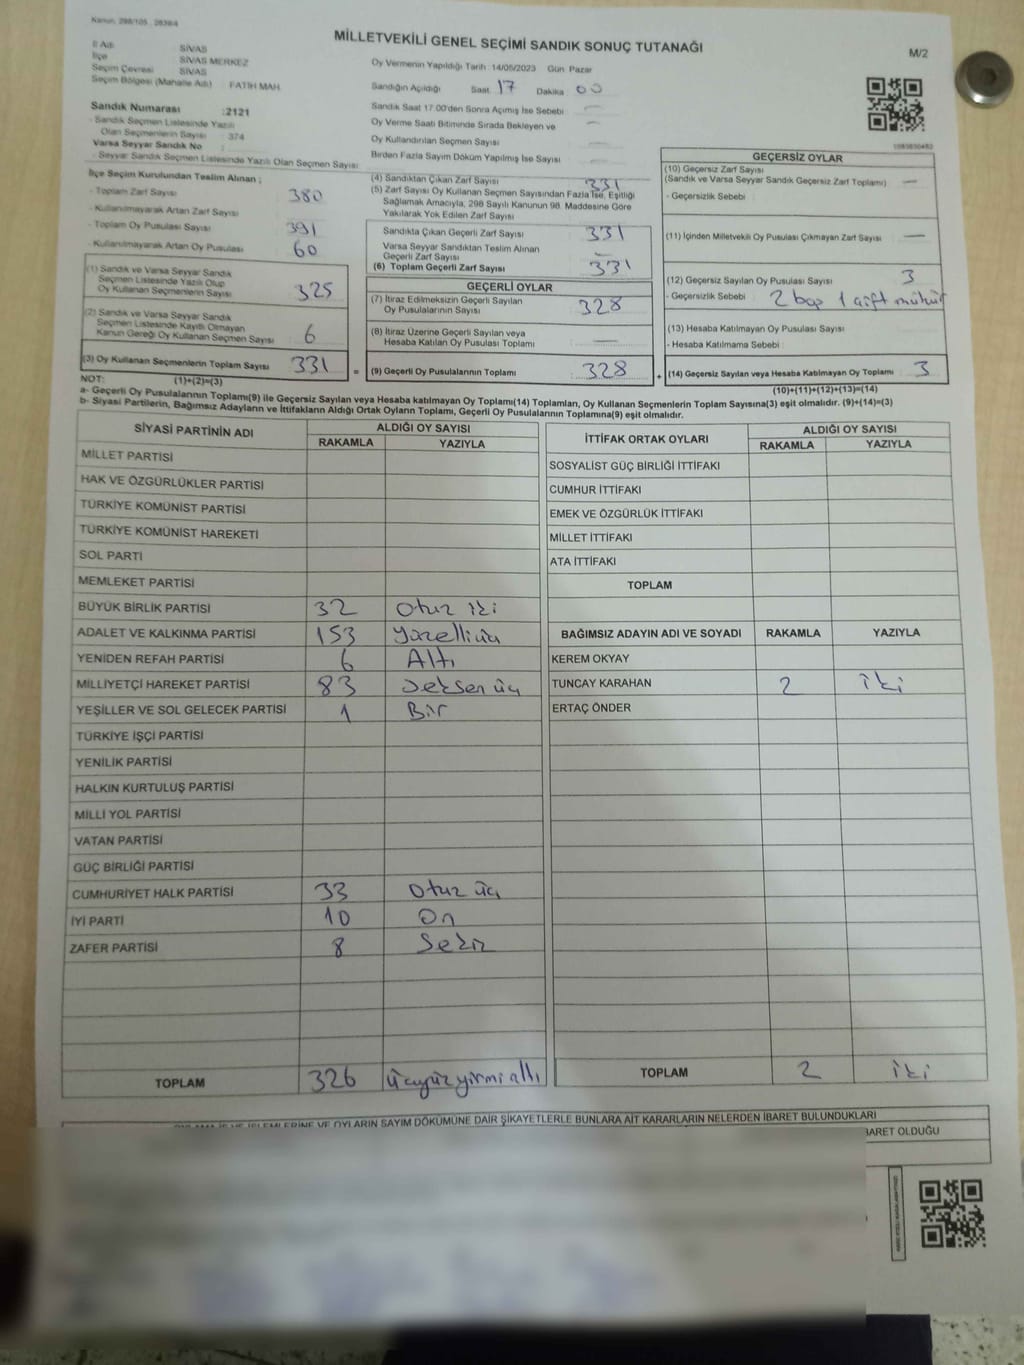 Kanun, 298/105 , 2839/4
MİLLETVEKİLİ GENEL SEÇİMİ SANDIK SONUÇ TUTANAĞI
M/2
İl Adı SİVAS
İlçe SİVAS MERKEZ
Seçim Çevresi SİVAS
Seçim Bölgesi (Mahalle Adı) FATİH MAH
Sandık Numarası :2121
- Sandık Seçmen Listesinde Yazılı
Olan Seçmenlerin Sayısı 374
Varsa Seyyar Sandık No
- Seyyar Sandık Seçmen Listesinde Yazılı Olan Seçmen Sayısı
Oy Vermenin Yapıldığı Tarih :14/05/2023 Gün Pazar
Sandığın Açıldığı Saat 17 Dakika 00
Sandık Saat 17.00'den Sonra Açımış İse Sebebi —
Oy Verme Saati Bitiminde Sırada Bekleyen ve
Oy Kullandırılan Seçmen Sayısı —
Birden Fazla Sayım Döküm Yapılmış İse Sayısı —
İlçe Seçim Kurulundan Teslim Alınan ;
- Toplam Zarf Sayısı 380
- Kullanılmayarak Artan Zarf Sayısı
- Toplam Oy Pusulası Sayısı 391
- Kullanılmayarak Artan Oy Pusulası 60
(1) Sandık ve Varsa Seyyar Sandık
Seçmen Listesinde Yazılı Olup
Oy Kullanan Seçmenlerin Sayısı 325
(2) Sandık ve Varsa Seyyar Sandık
Seçmen Listesinde Kayıtlı Olmayan
Kanun Gereği Oy Kullanan Seçmen Sayısı 6
(3) Oy Kullanan Seçmenlerin Toplam Sayısı 331 =
(4) Sandıktan Çıkan Zarf Sayısı 331
(5) Zarf Sayısı Oy Kullanan Seçmen Sayısından Fazla İse, Eşitliği
Sağlamak Amacıyla, 298 Sayılı Kanunun 98. Maddesine Göre
Yakılarak Yok Edilen Zarf Sayısı
Sandıkta Çıkan Geçerli Zarf Sayısı 331
Varsa Seyyar Sandıktan Teslim Alınan
Geçerli Zarf Sayısı
(6) Toplam Geçerli Zarf Sayısı 331
GEÇERLİ OYLAR
(7) İtiraz Edilmeksizin Geçerli Sayılan
Oy Pusulalarının Sayısı 328
(8) İtiraz Üzerine Geçerli Sayılan veya
Hesaba Katılan Oy Pusulası Toplamı —
(9) Geçerli Oy Pusulalarının Toplamı 328 +
GEÇERSİZ OYLAR
(10) Geçersiz Zarf Sayısı
(Sandık ve Varsa Seyyar Sandık Geçersiz Zarf Toplamı) —
- Geçersizlik Sebebi
(11) İçinden Milletvekili Oy Pusulası Çıkmayan Zarf Sayısı —
(12) Geçersiz Sayılan Oy Pusulası Sayısı 3
- Geçersizlik Sebebi 2 boş 1 çift mühür
(13) Hesaba Katılmayan Oy Pusulası Sayısı
- Hesaba Katılmama Sebebi
(14) Geçersiz Sayılan veya Hesaba Katılmayan Oy Toplamı 3
NOT: (1)+(2)=(3)
(10)+(11)+(12)+(13)=(14)
a- Geçerli Oy Pusulalarının Toplamı(9) ile Geçersiz Sayılan veya Hesaba Katılmayan Oy Toplamı(14) Toplamları, Oy Kullanan Seçmenlerin Toplam Sayısına(3) eşit olmalıdır. (9)+(14)=(3)
b- Siyasi Partilerin, Bağımsız Adayların ve İttifakların Aldığı Ortak Oyların Toplamı, Geçerli Oy Pusulalarının Toplamına(9) eşit olmalıdır.
SİYASİ PARTİNİN ADI ALDIĞI OY SAYISI
RAKAMLA YAZIYLA
MİLLET PARTİSİ
HAK VE ÖZGÜRLÜKLER PARTİSİ
TÜRKİYE KOMÜNİST PARTİSİ
TÜRKİYE KOMÜNİST HAREKETİ
SOL PARTİ
MEMLEKET PARTİSİ
BÜYÜK BİRLİK PARTİSİ 32 Otuz iki
ADALET VE KALKINMA PARTİSİ 153 Yüzelliüç
YENİDEN REFAH PARTİSİ 6 Altı
MİLLİYETÇİ HAREKET PARTİSİ 83 Seksen üç
YEŞİLLER VE SOL GELECEK PARTİSİ 1 Bir
TÜRKİYE İŞÇİ PARTİSİ
YENİLİK PARTİSİ
HALKIN KURTULUŞ PARTİSİ
MİLLİ YOL PARTİSİ
VATAN PARTİSİ
GÜÇ BİRLİĞİ PARTİSİ
CUMHURİYET HALK PARTİSİ 33 Otuz üç
İYİ PARTİ 10 On
ZAFER PARTİSİ 8 Sekiz
TOPLAM 326 Üçyüzyirmialtı
İTTİFAK ORTAK OYLARI ALDIĞI OY SAYISI
RAKAMLA YAZIYLA
SOSYALİST GÜÇ BİRLİĞİ İTTİFAKI
CUMHUR İTTİFAKI
EMEK VE ÖZGÜRLÜK İTTİFAKI
MİLLET İTTİFAKI
ATA İTTİFAKI
TOPLAM
BAĞIMSIZ ADAYIN ADI VE SOYADI RAKAMLA YAZIYLA
KEREM OKYAY
TUNCAY KARAHAN 2 iki
ERTAÇ ÖNDER
TOPLAM 2 iki
OYLARIN SAYIM DÖKÜMÜNE DAİR ŞİKAYETLERLE BUNLARA AİT KARARLARIN NELERDEN İBARET BULUNDUKLARI
BARET OLDUĞU